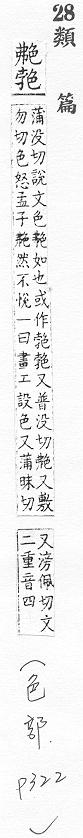 28
類篇
艴
艳
蒲没切說文色艴如也或作艳艴又普没切艴又敷
勿切色怒孟子艴然不悅一曰畫工設色又蒲昧切
又滂佩切文
二重音四
（色部 P322）